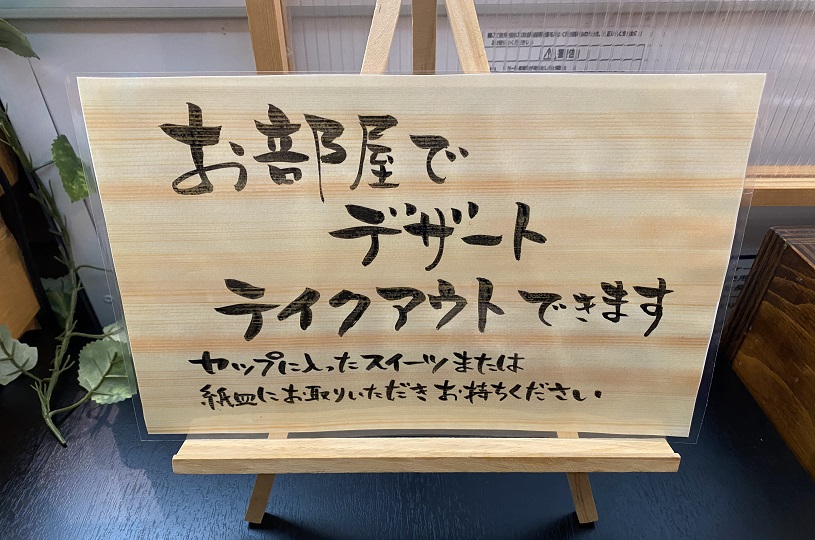 お部屋で
デザート
テイクアウトできます
カップに入ったスイーツまたは
紙皿にお取りいただきお持ちください
注意